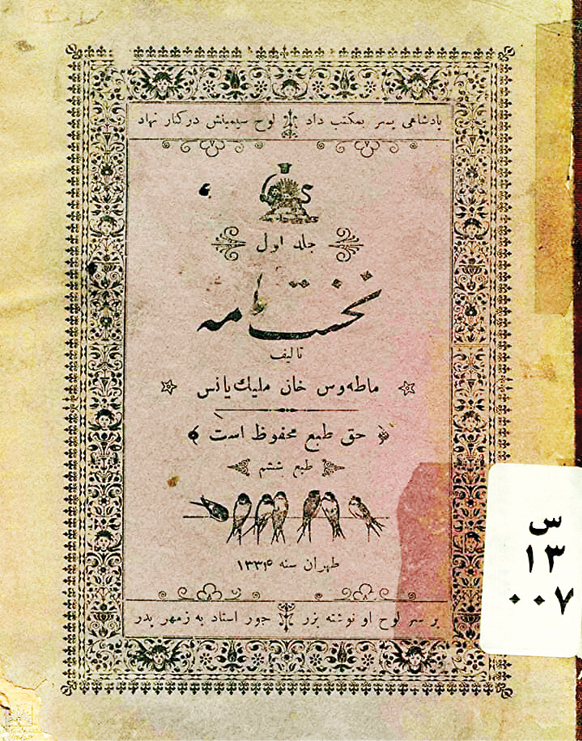 پادشاهی پسر بمکتب داد لوح سیمینش درکنار نهاد
جلد اول
نخست نامه
تالیف
ماطه‌وس خان ملیک‌یانس
حق طبع محفوظ است
طبع ششم
طهران سنه ۱۳۳۴
بر سر لوح او نوشته بزر جور استاد به زمهر پدر
س
۱۳
۰۰۷